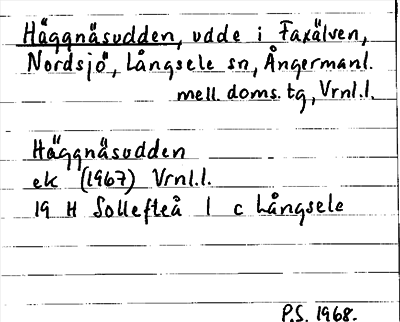 Häggnäsudden, udde i Faxälven,
Nordsjö, Långsele sn, Ångermanl.
mell. doms. tg, Vrnl.l.
Häggnäsudden
ek (1967) Vrnl.l.
19 H Sollefteå 1 c Långsele
P.S. 1968.